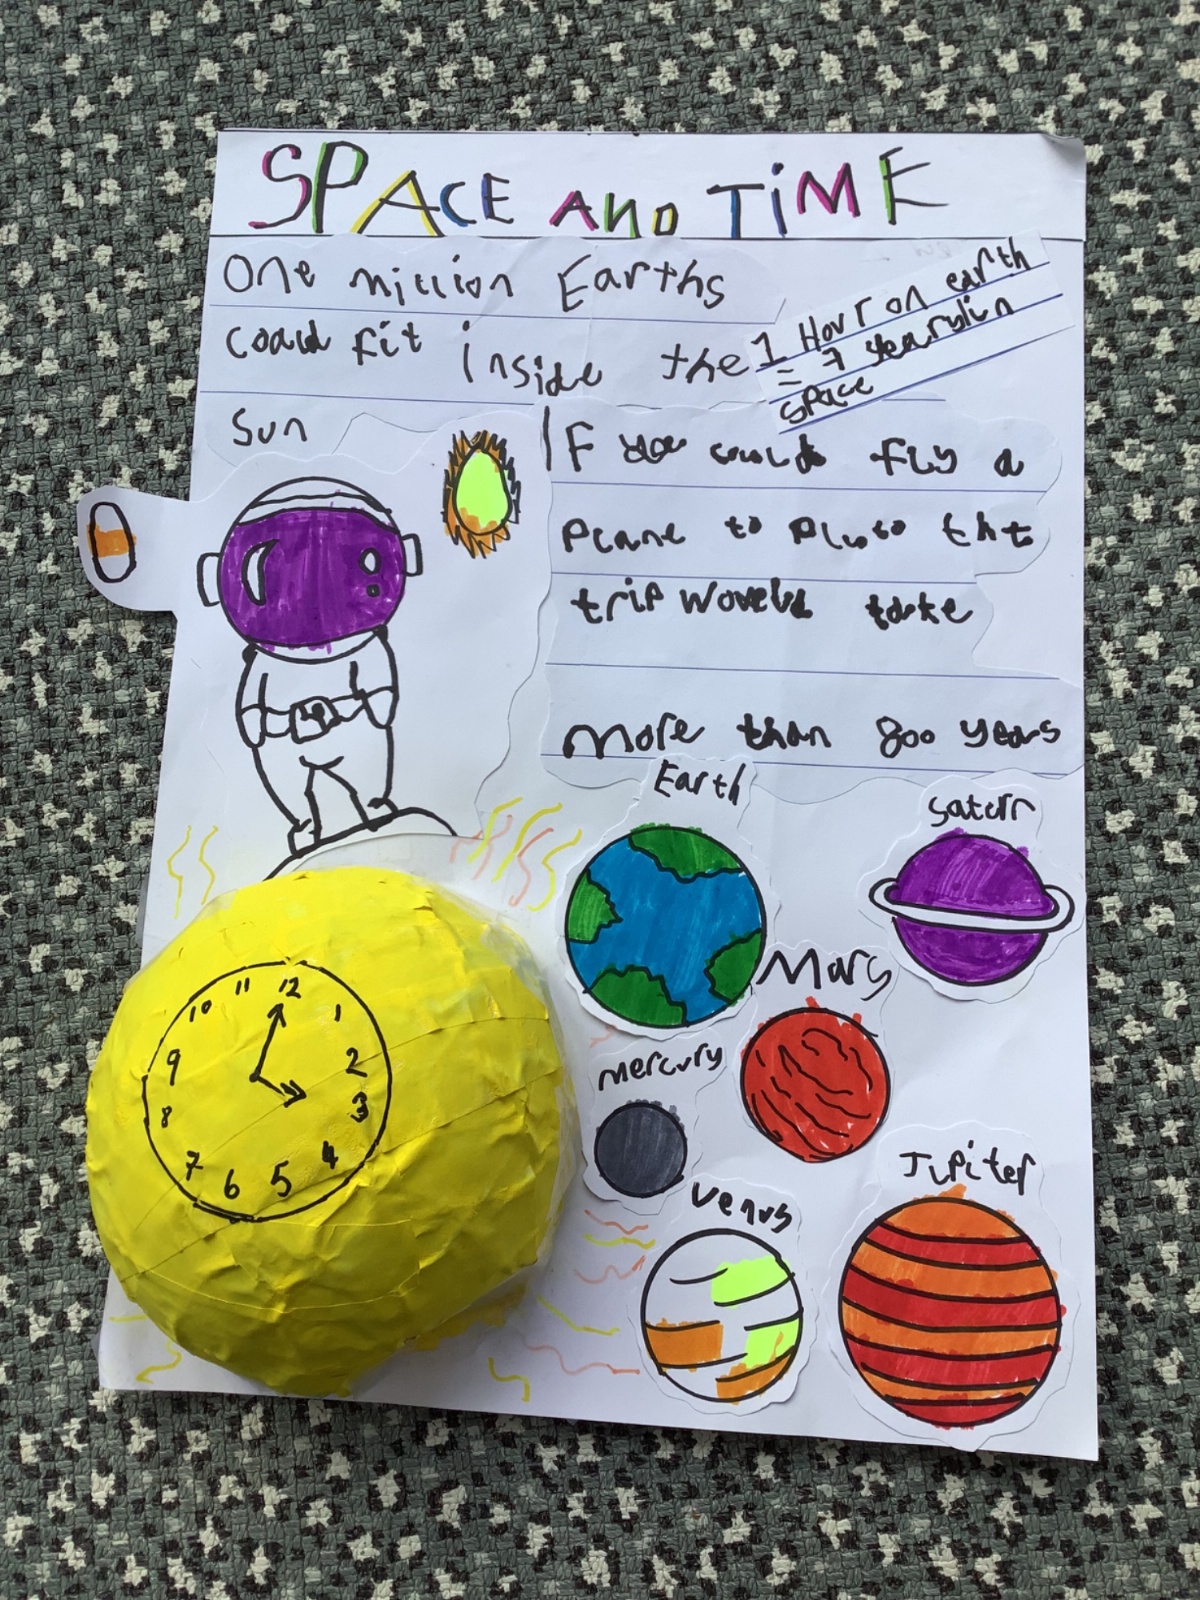 SPACE AND TiME
One million Earths
could fit inside the
Sun
1 Hour on earth
= 7 years in
space
IF you could fly a
Plane to Pluto tht
trip would take
more than 800 years
Earth
Saturn
Mars
mercury
Venus
Jupiter
12
11
1
10
2
9
3
8
4
7
6
5